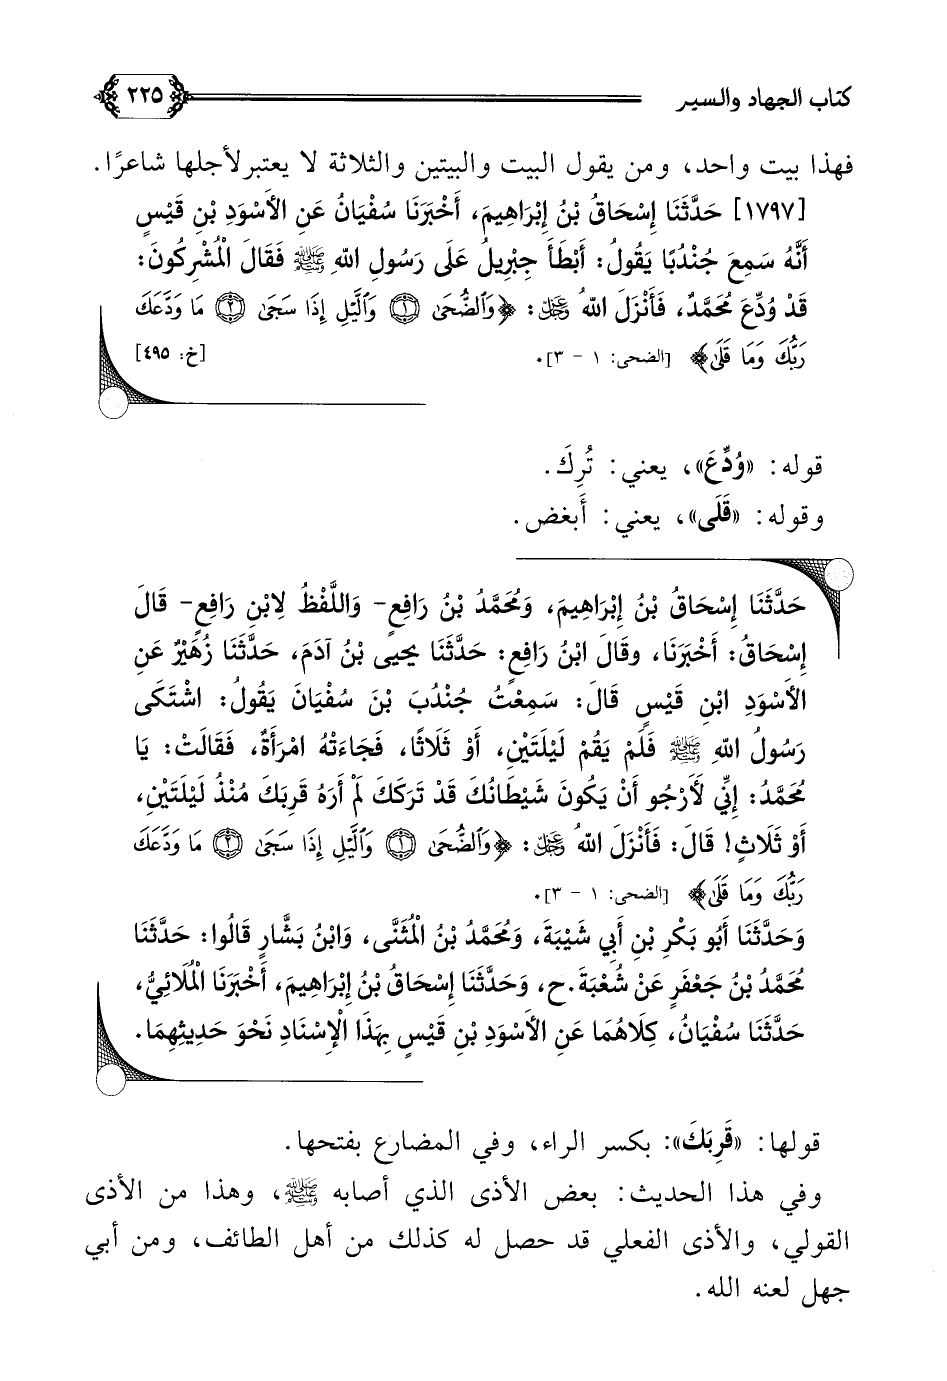 كتاب الجهاد والسير ٢٢٥
فهذا بيت واحد، ومن يقول البيت والبيتين والثلاثة لا يعتبر لأجلها شاعرًا.
[١٧٩٧] حَدَّثَنَا إِسْحَاقُ بْنُ إِبْرَاهِيمَ، أَخْبَرَنَا سُفْيَانُ عَنِ الأَسْوَدِ بْنِ قَيْسٍ
أَنَّهُ سَمِعَ جُنْدُبًا يَقُولُ: أَبْطَأَ جِبْرِيلُ عَلَى رَسُولِ اللهِ ﷺ فَقَالَ الْمُشْرِكُونَ:
قَدْ وُدِّعَ مُحَمَّدٌ، فَأَنْزَلَ اللهُ عز وجل: ﴿وَٱلضُّحَىٰ ١ وَٱلَّيْلِ إِذَا سَجَىٰ ٢ مَا وَدَّعَكَ
رَبُّكَ وَمَا قَلَىٰ﴾ [الضحى: ١ - ٣]. [خ: ٤٩٥]
قوله: «وُدِّعَ»، يعني: تُرِكَ.
وقوله: «قَلَى»، يعني: أَبغض.
حَدَّثَنَا إِسْحَاقُ بْنُ إِبْرَاهِيمَ، وَمُحَمَّدُ بْنُ رَافِعٍ- وَاللَّفْظُ لِابْنِ رَافِعٍ- قَالَ
إِسْحَاقُ: أَخْبَرَنَا، وقَالَ ابْنُ رَافِعٍ: حَدَّثَنَا يحيى بْنُ آدَمَ، حَدَّثَنَا زُهَيْرٌ عَنِ
الأَسْوَدِ ابْنِ قَيْسٍ قَالَ: سَمِعْتُ جُنْدُبَ بْنَ سُفْيَانَ يَقُولُ: اشْتَكَى
رَسُولُ اللهِ ﷺ فَلَمْ يَقُمْ لَيْلَتَيْنِ، أَوْ ثَلَاثًا، فَجَاءَتْهُ امْرَأَةٌ، فَقَالَتْ: يَا
مُحَمَّدُ: إِنِّي لَأَرْجُو أَنْ يَكُونَ شَيْطَانُكَ قَدْ تَرَكَكَ لَمْ أَرَهُ قَرِبَكَ مُنْذُ لَيْلَتَيْنِ،
أَوْ ثَلَاثٍ! قَالَ: فَأَنْزَلَ اللهُ عز وجل: ﴿وَٱلضُّحَىٰ ١ وَٱلَّيْلِ إِذَا سَجَىٰ ٢ مَا وَدَّعَكَ
رَبُّكَ وَمَا قَلَىٰ﴾ [الضحى: ١ - ٣].
وَحَدَّثَنَا أَبُو بَكْرِ بْنِ أَبِي شَيْبَةَ، وَمُحَمَّدُ بْنُ الْمُثَنَّى، وَابْنُ بَشَّارٍ قَالُوا: حَدَّثَنَا
مُحَمَّدُ بْنُ جَعْفَرٍ عَنْ شُعْبَةَ. ح، وَحَدَّثَنَا إِسْحَاقُ بْنُ إِبْرَاهِيمَ، أَخْبَرَنَا الْمُلَائِيُّ،
حَدَّثَنَا سُفْيَانُ، كِلَاهُمَا عَنِ الأَسْوَدِ بْنِ قَيْسٍ بِهَذَا الْإِسْنَادِ نَحْوَ حَدِيثِهِمَا.
قولها: «قَرِبَكَ»: بكسر الراء، وفي المضارع بفتحها.
وفي هذا الحديث: بعض الأذى الذي أصابه ﷺ، وهذا من الأذى
القولي، والأذى الفعلي قد حصل له كذلك من أهل الطائف، ومن أبي
جهل لعنه الله.